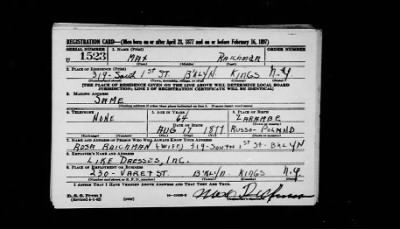 REGISTRATION CARD—(Men born on or after April 28, 1877 and on or before February 16, 1897)
SERIAL NUMBER 1. NAME (Print) ORDER NUMBER
U 1523 MAX RAICHMAN
(First) (Middle) (Last)
2. PLACE OF RESIDENCE (Print)
319-South 1st ST. B'KLYN KINGS N.Y
[THE PLACE OF RESIDENCE GIVEN ON THE LINE ABOVE WILL DETERMINE LOCAL BOARD
JURISDICTION; LINE 2 OF REGISTRATION CERTIFICATE WILL BE IDENTICAL]
3. MAILING ADDRESS
SAME
[Mailing address if other than place indicated on line 2. If same insert word same]
4. TELEPHONE 5. AGE IN YEARS 6. PLACE OF BIRTH
NONE 64
DATE OF BIRTH
AUG 17 1877 RUSSO-POLAND
7. NAME AND ADDRESS OF PERSON WHO WILL ALWAYS KNOW YOUR ADDRESS
ROSA RAICHMAN (WIFE) 319-SOUTH 1st ST. BKLYN
8. EMPLOYER'S NAME AND ADDRESS
LIKE DRESSES, INC.
9. PLACE OF EMPLOYMENT OR BUSINESS
230-VARET ST. B'KLYN. KINGS N.Y.
(Number and street or R. F. D. number) (Town) (County) (State)
I AFFIRM THAT I HAVE VERIFIED ABOVE ANSWERS AND THAT THEY ARE TRUE.
D. S. S. Form 1
(Revised 4-1-42)